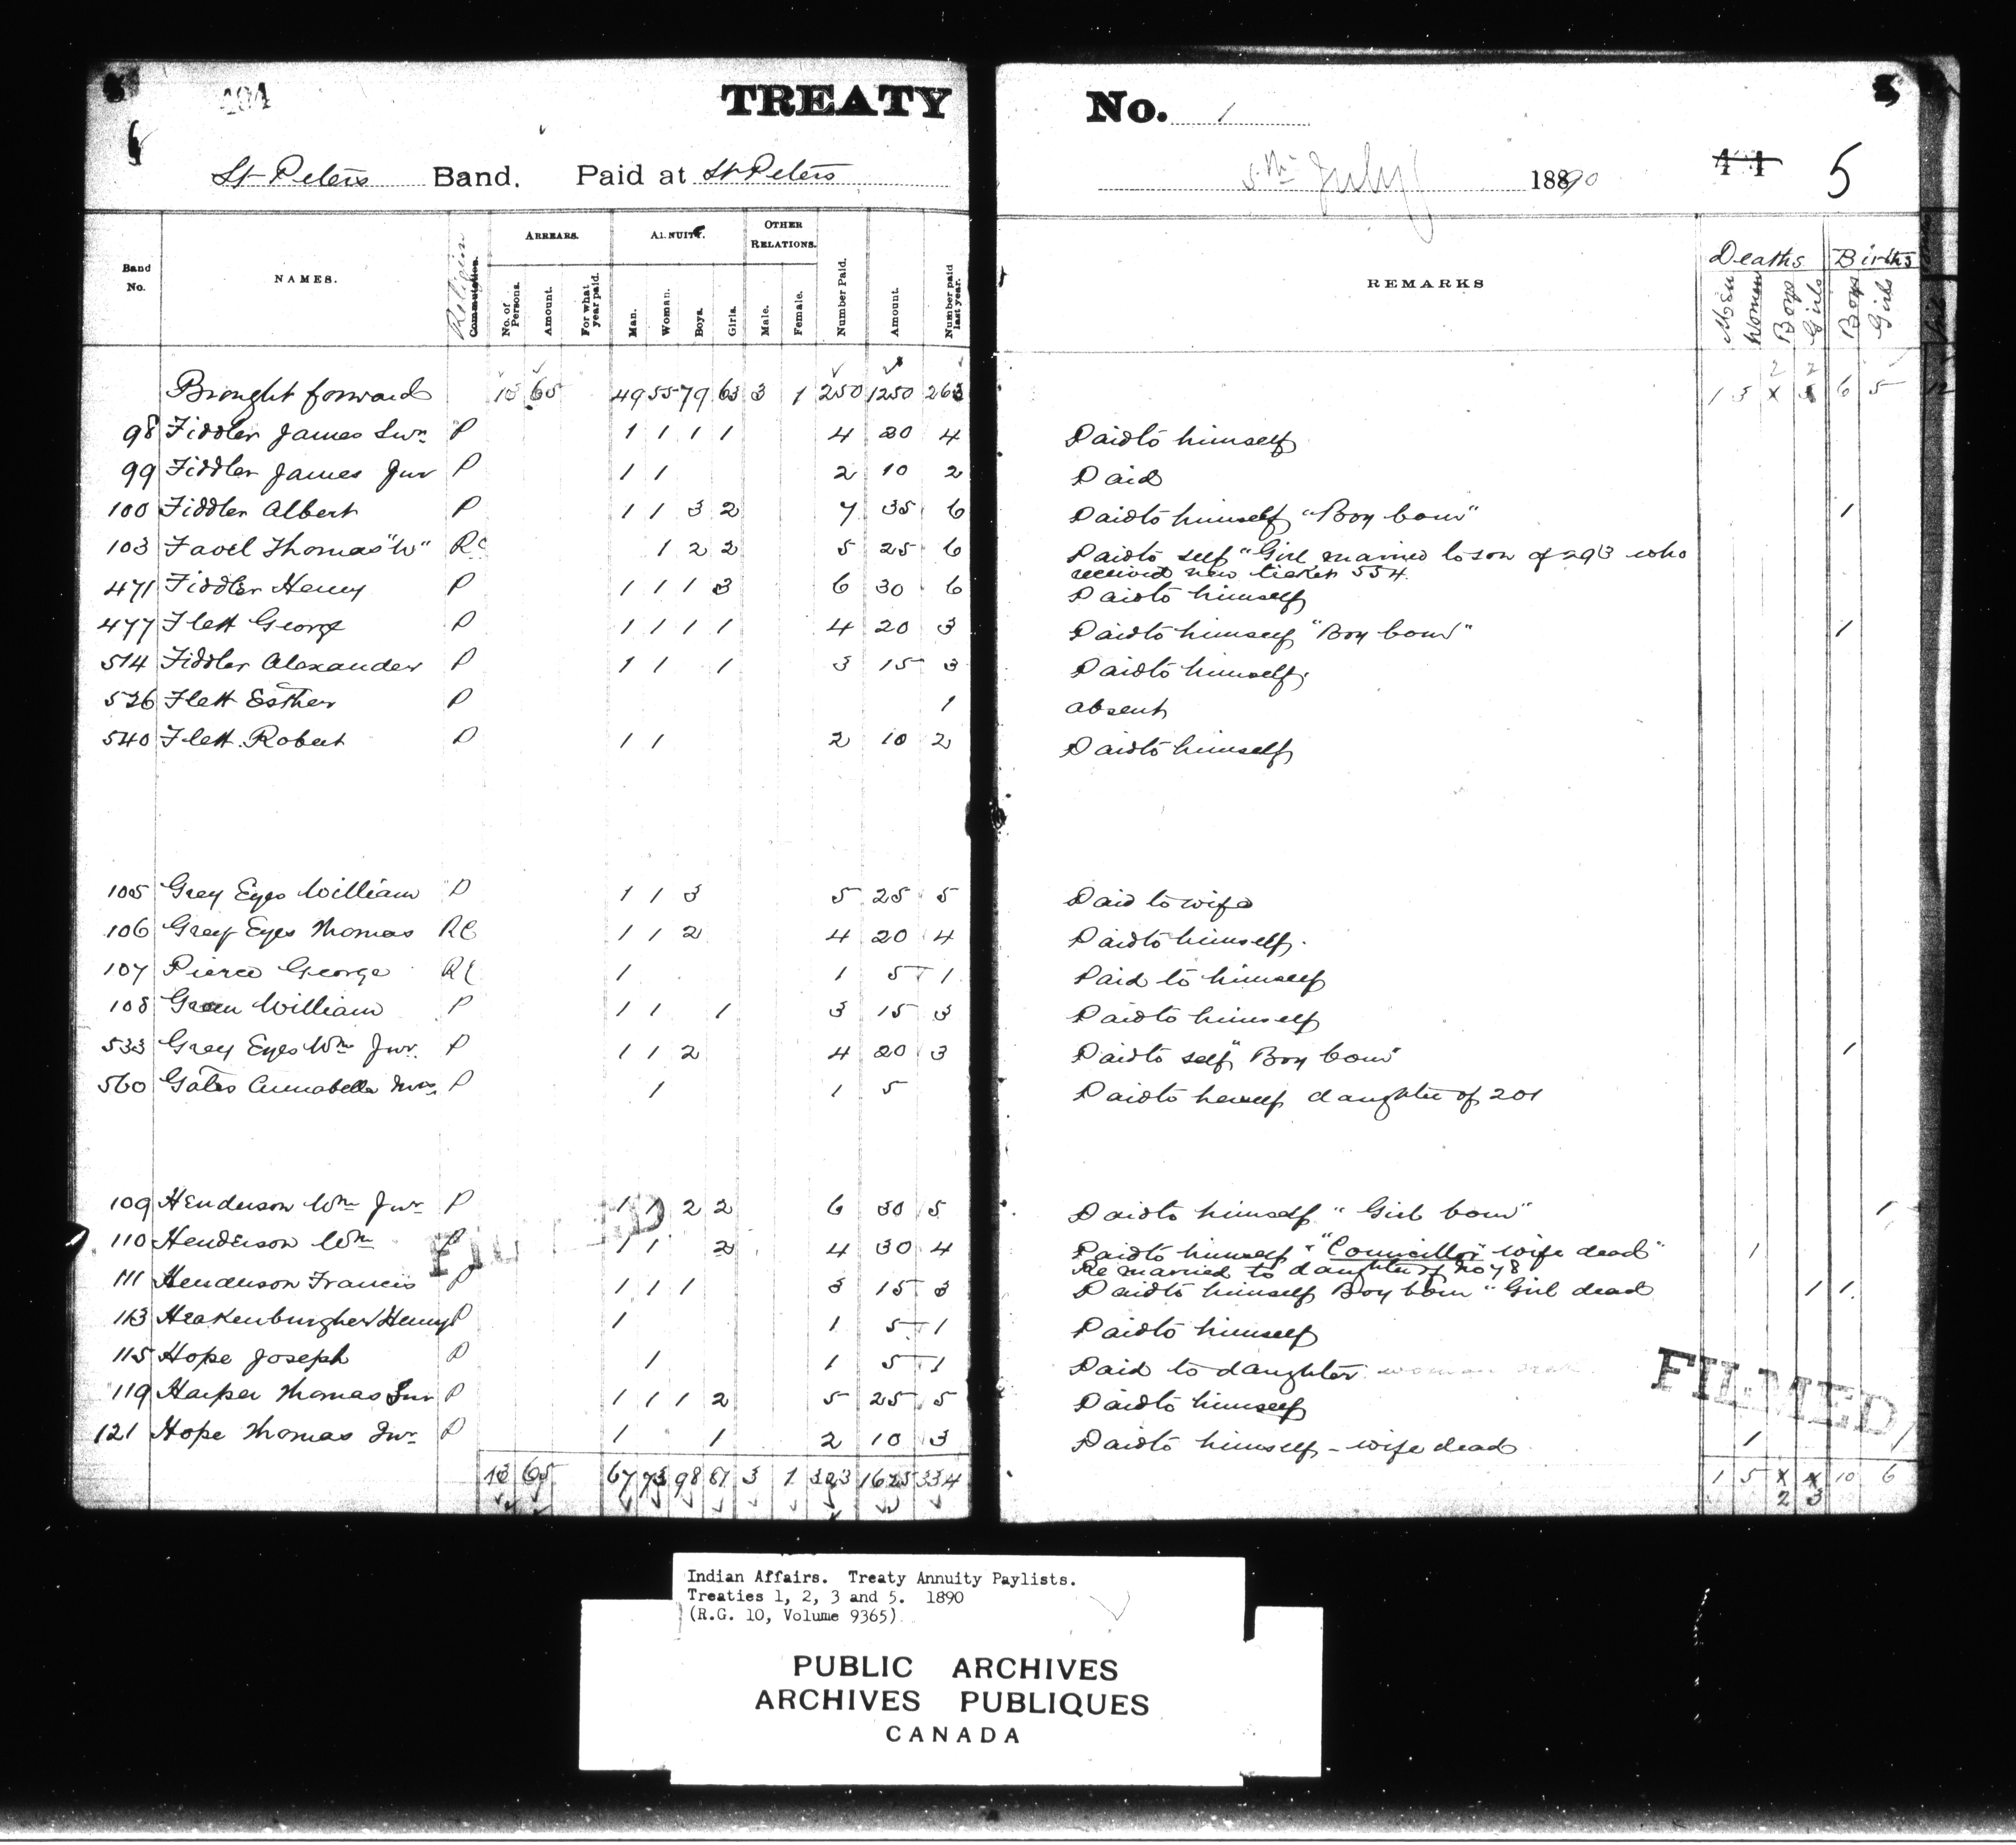 TREATY No. 1
St Peters Band. Paid at St Peters 5th July 1890 44 5
Band No. NAMES. Religion Commutation. ARREARS. No. of Persons. Amount. For what year paid. ANNUITY. Man. Woman. Boys. Girls. OTHER RELATIONS. Male. Female. Number Paid. Amount. Number paid last year. REMARKS Deaths Men Women Boys Girls Births Boys Girls
Brought forward 13 65 49 55 79 63 3 1 250 1250 263 1 3 2 2 6 5 12
98 Fiddler James Snr P 1 1 1 1 4 20 4 Paid to himself
99 Fiddler James Jnr P 1 1 2 10 2 Paid
100 Fiddler Albert P 1 1 3 2 7 35 6 Paid to himself "Boy born" 1
103 Favel Thomas "W" RC 1 2 2 5 25 6 Paid to self "Girl married to son of 293 who
received new ticket 554.
471 Fiddler Henry P 1 1 1 3 6 30 6 Paid to himself
477 Flett George P 1 1 1 1 4 20 3 Paid to himself "Boy born" 1
514 Fiddler Alexander P 1 1 1 3 15 3 Paid to himself
526 Flett Esther P 1 absent
540 Flett Robert P 1 1 2 10 2 Paid to himself
105 Grey Eyes William P 1 1 3 5 25 5 Paid to wife
106 Grey Eyes Thomas RC 1 1 2 4 20 4 Paid to himself.
107 Pierce George RC 1 1 5 1 Paid to himself
108 Green William P 1 1 1 3 15 3 Paid to himself
533 Grey Eyes Wm Jnr. P 1 1 2 4 20 3 Paid to self "Boy born" 1
560 Gates Annabella Mrs. P 1 1 5 Paid to herself daughter of 201
109 Henderson Wm Jnr P 1 1 2 2 6 30 5 Paid to himself "Girl born" 1
110 Henderson Wm P 1 1 2 4 30 4 Paid to himself "Councillor" wife dead" 1
Re married to daughter of No 78
111 Henderson Francis P 1 1 1 3 15 3 Paid to himself Boy born "Girl dead 1 1
113 Heakenburgher Henry P 1 1 5 1 Paid to himself
115 Hope Joseph P 1 1 5 1 Paid to daughter
119 Harper Thomas Snr P 1 1 1 2 5 25 5 Paid to himself
121 Hope Thomas Jnr P 1 1 2 10 3 Paid to himself - wife dead 1
13 65 67 73 98 81 3 1 323 1625 334 1 5 x x 10 6
2 3
FILMED
FILMED
Indian Affairs. Treaty Annuity Paylists.
Treaties 1, 2, 3 and 5. 1890
(R.G. 10, Volume 9365)
PUBLIC ARCHIVES
ARCHIVES PUBLIQUES
CANADA